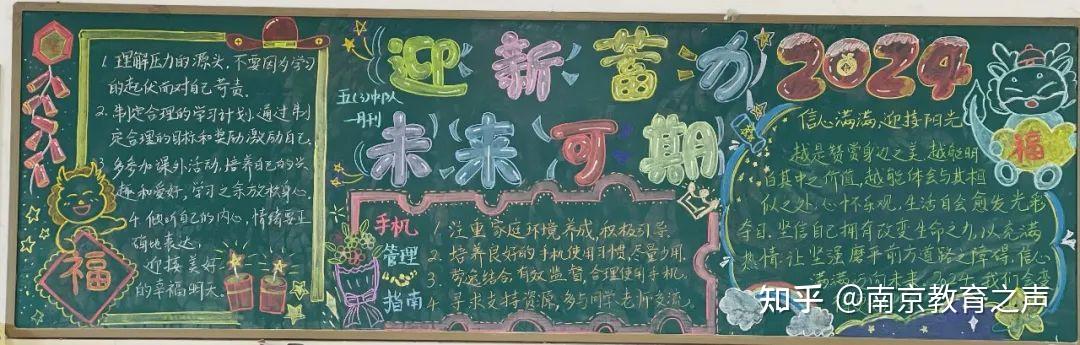 1. 理解压力的源头,不要因为学习
的起伏而对自己苛责.
2. 制定合理的学习计划,通过制
定合理的目标和奖励激励自己.
3. 多参加课外活动,培养自己的兴
趣和爱好,学习之余放松身心
4. 倾听自己的内心,情绪要正
确地表达,
迎接美好
的幸福明天。
福
迎新蓄力2024
五(3)中队
一月刊
未来可期
手机
管理
指南
1. 注重家庭环境养成,积极引导.
2. 培养良好的手机使用习惯,尽量少用.
3. 劳逸结合,有效监督,合理使用手机.
4. 寻求支持资源,多与同学、老师交流.
信心满满、迎接阳光
越是赞赏身边之美,越能明
白其中之价值,越能体会与其相
似之处.心怀乐观,生活自会愈发光彩
夺目.坚信自己拥有改变生命之力,以充满
热情,让坚强磨平前方道路之障碍.信心
满满
福
知乎 @南京教育之声